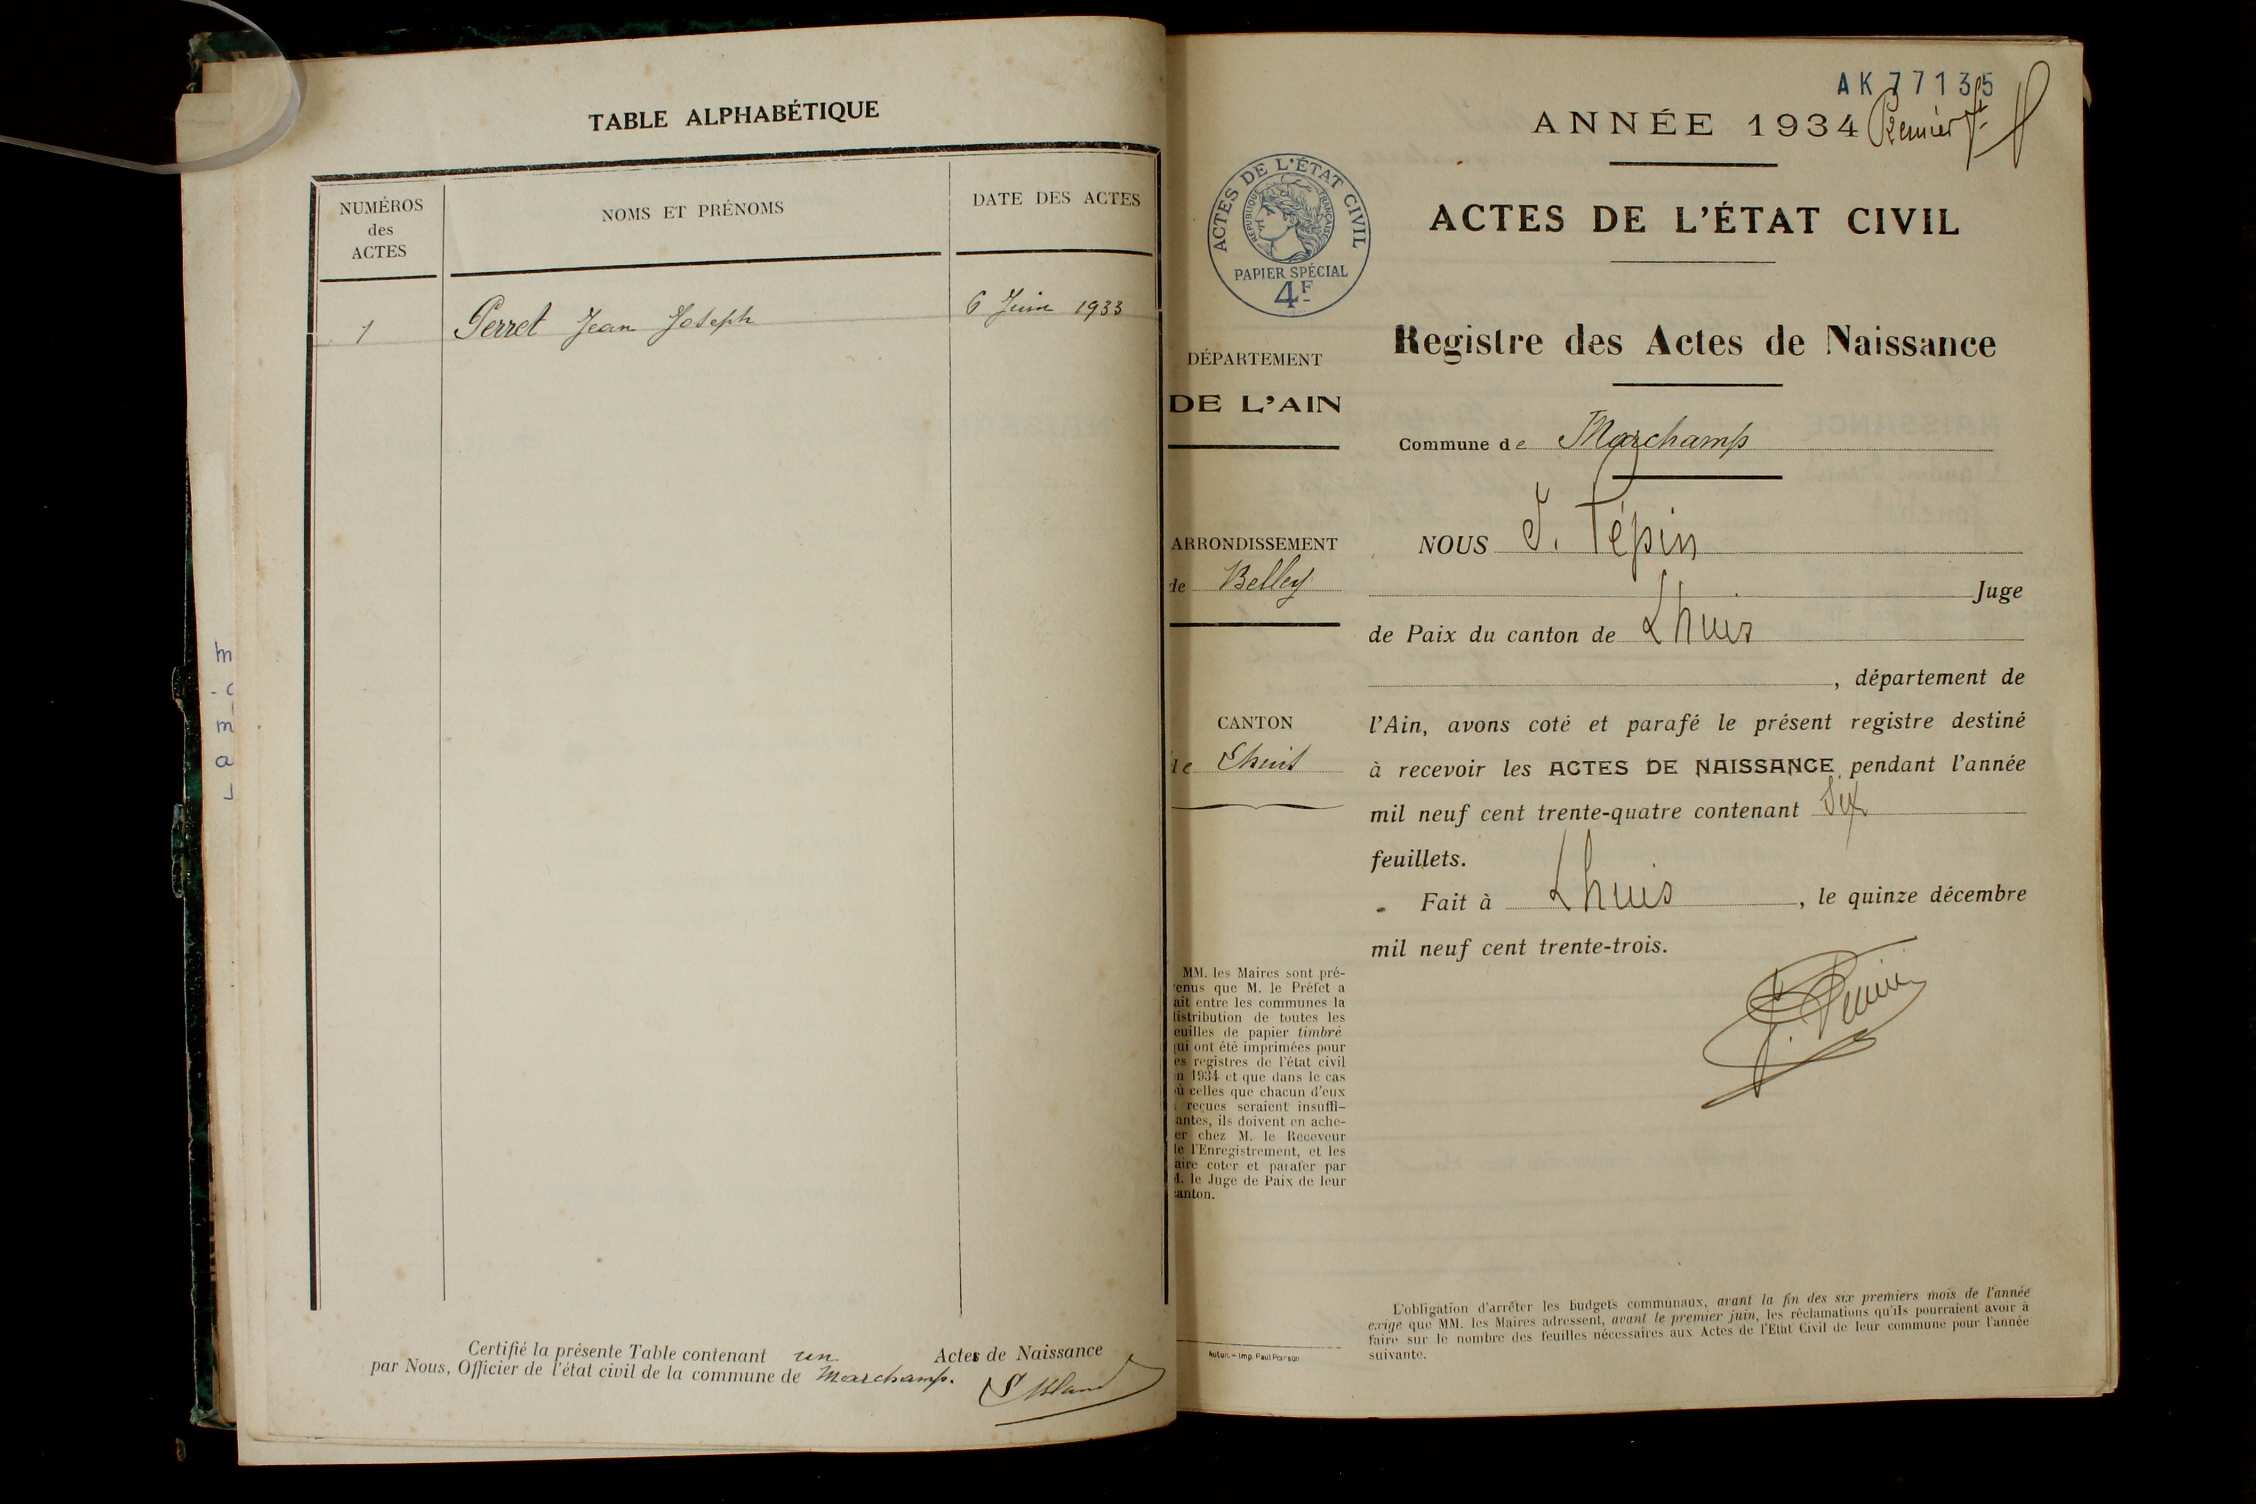 TABLE ALPHABÉTIQUE
NUMÉROS
des
ACTES
NOMS ET PRÉNOMS
DATE DES ACTES
1
Perret Jean Joseph
6 Juin 1933
Certifié la présente Table contenant un Actes de Naissance
par Nous, Officier de l'état civil de la commune de Marchamp.
AK 77135
ANNÉE 1934
Premier
ACTES DE L'ÉTAT CIVIL
RÉPUBLIQUE FRANÇAISE
PAPIER SPÉCIAL
4F
DÉPARTEMENT
DE L'AIN
ARRONDISSEMENT
de Belley
CANTON
de Lhuis
MM. les Maires sont pré-
enus que M. le Préfet a
ait entre les communes la
istribution de toutes les
euilles de papier timbré
qui ont été imprimées pour
es registres de l'état civil
n 1934 et que dans le cas
où celles que chacun d'eux
reçues seraient insuffi-
antes, ils doivent en ache-
er chez M. le Receveur
de l'Enregistrement, et les
aire coter et parafer par
M. le Juge de Paix de leur
canton.
Autun. - Imp. Paul Parson
ACTES DE L'ÉTAT CIVIL
Registre des Actes de Naissance
Commune de Marchamp
NOUS J. Pépin
Juge
de Paix du canton de Lhuis
, département de
l'Ain, avons coté et parafé le présent registre destiné
à recevoir les ACTES DE NAISSANCE pendant l'année
mil neuf cent trente-quatre contenant Six
feuillets.
Fait à Lhuis, le quinze décembre
mil neuf cent trente-trois.
L'obligation d'arrêter les budgets communaux, avant la fin des six premiers mois de l'année
exige que MM. les Maires adressent, avant le premier juin, les réclamations qu'ils pourraient avoir à
faire sur le nombre des feuilles nécessaires aux Actes de l'Etat Civil de leur commune pour l'année
suivante.